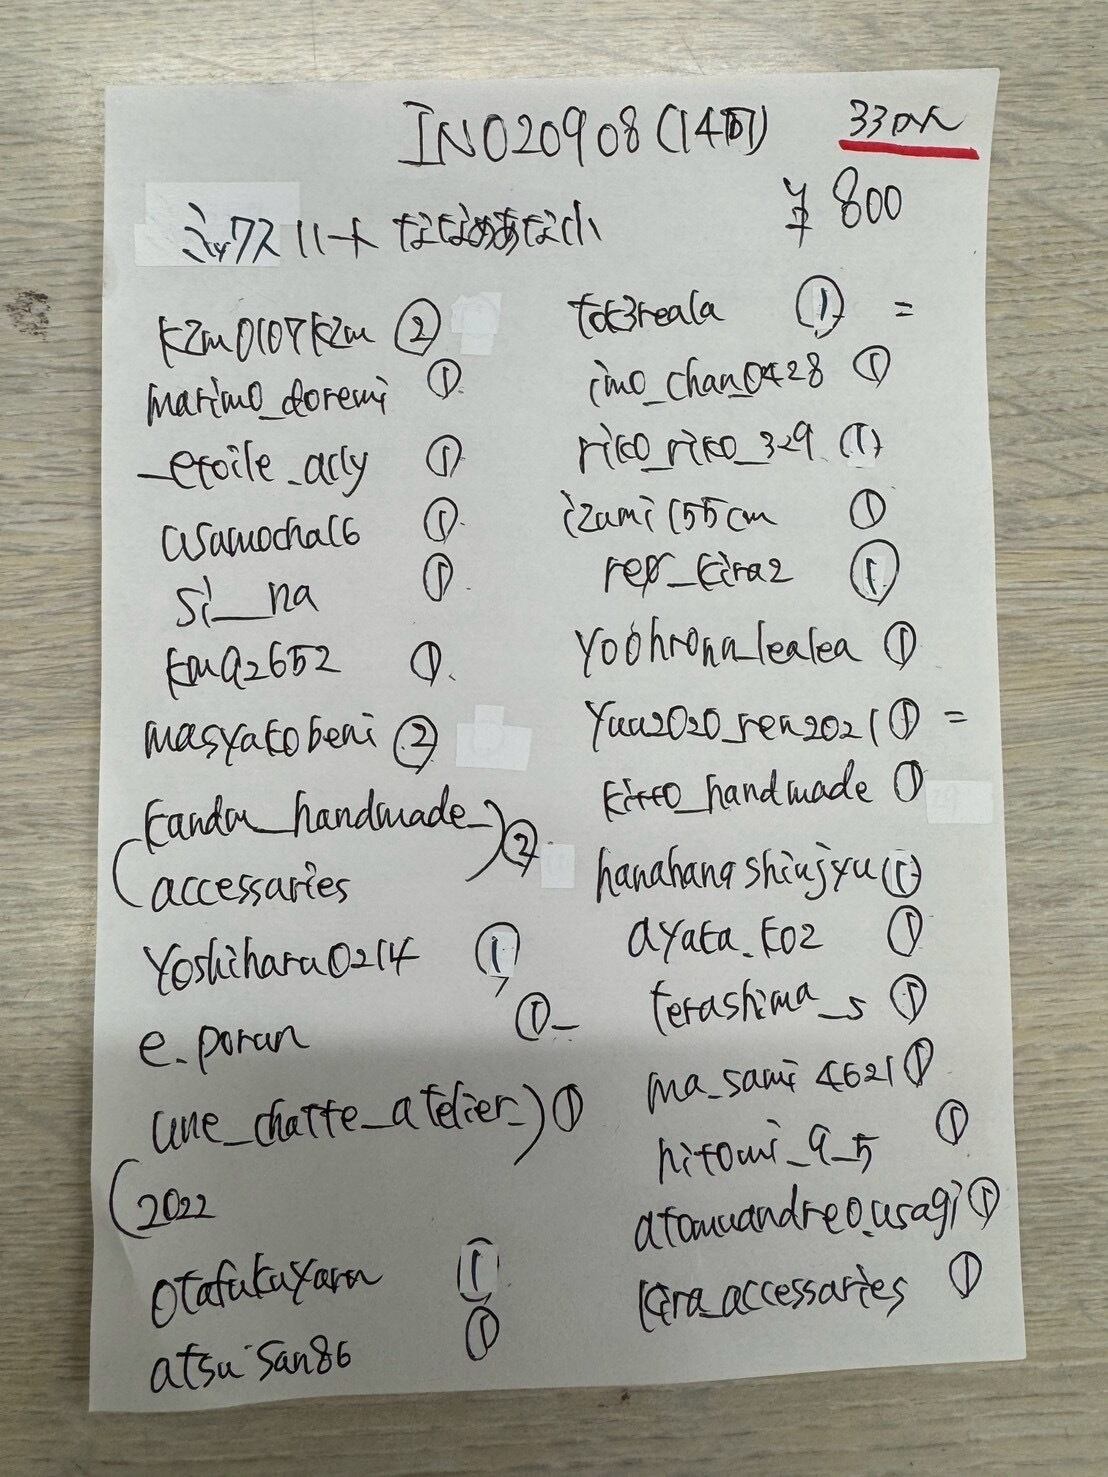 INO20908(14回)
¥800
ミックスハート ななめあな小
kzm0107kzm ②
marimo_doremi ①
_etoile_ally ①
asamocha16 ①
si__na ①
kma2652 ①
masyakobeni ②
(kandm_handmade_) ②
accessaries
yoshiharu0214 ①
e.poran ①
une_chatte_atelier_) ①
(2022
otafukuyarn ①
atsu-san86 ①
tok3reala ① =
imo_chan0428 ①
riko_riko_329 ①
izumi155cm ①
_kira2 ①
yoohrona_lealea ①
yuu2020_ren2021 ① =
kitto_handmade ①
hanahanashinjyu ①
ayata.ko2 ①
terashima_s ①
ma_sami4621 ①
hitomi_9_5 ①
atomuandreo.usagi ①
kira_accessaries ①